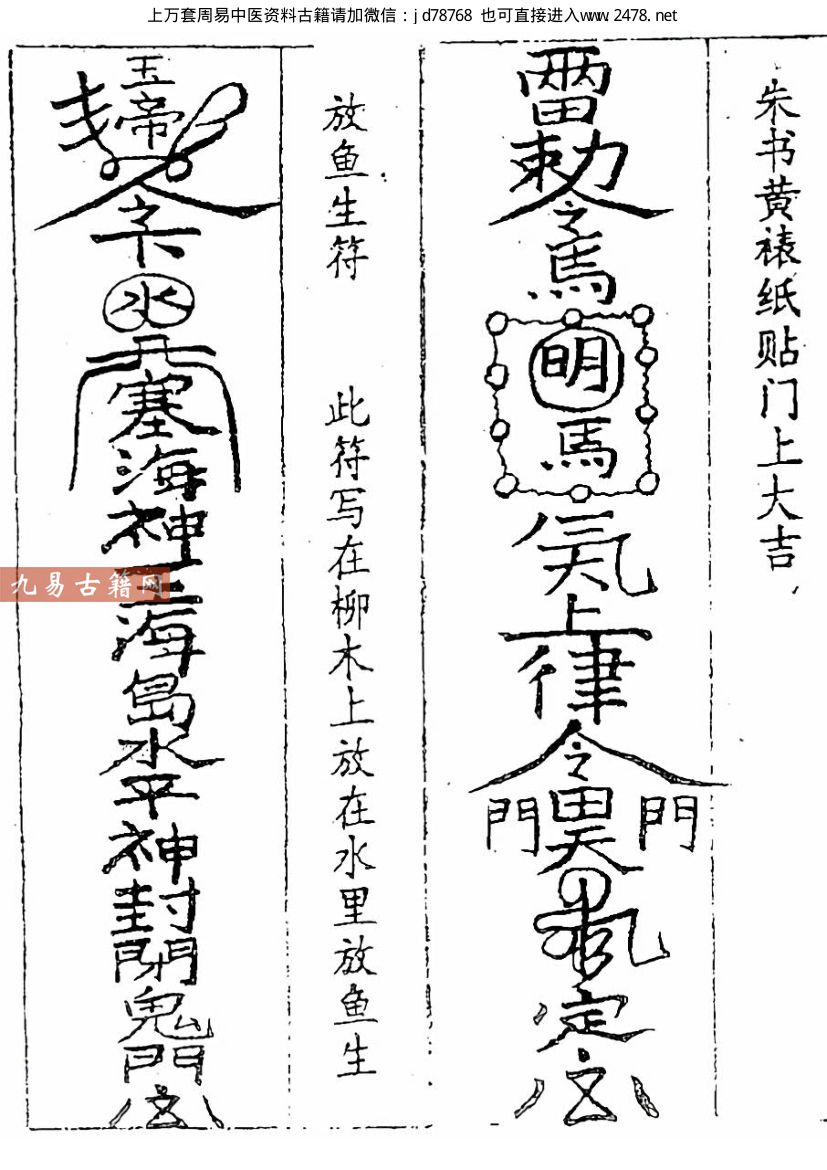 上万套周易中医资料古籍请加微信：jd78768 也可直接进入www.2478.net
朱书黄裱纸贴门上大吉、
雷勅令焉明焉氣上律令
門 門
定
放鱼生符 此符写在柳木上放在水里放鱼生
玉帝令下水
塞海神王海島水平神封閉鬼門
九易古籍网